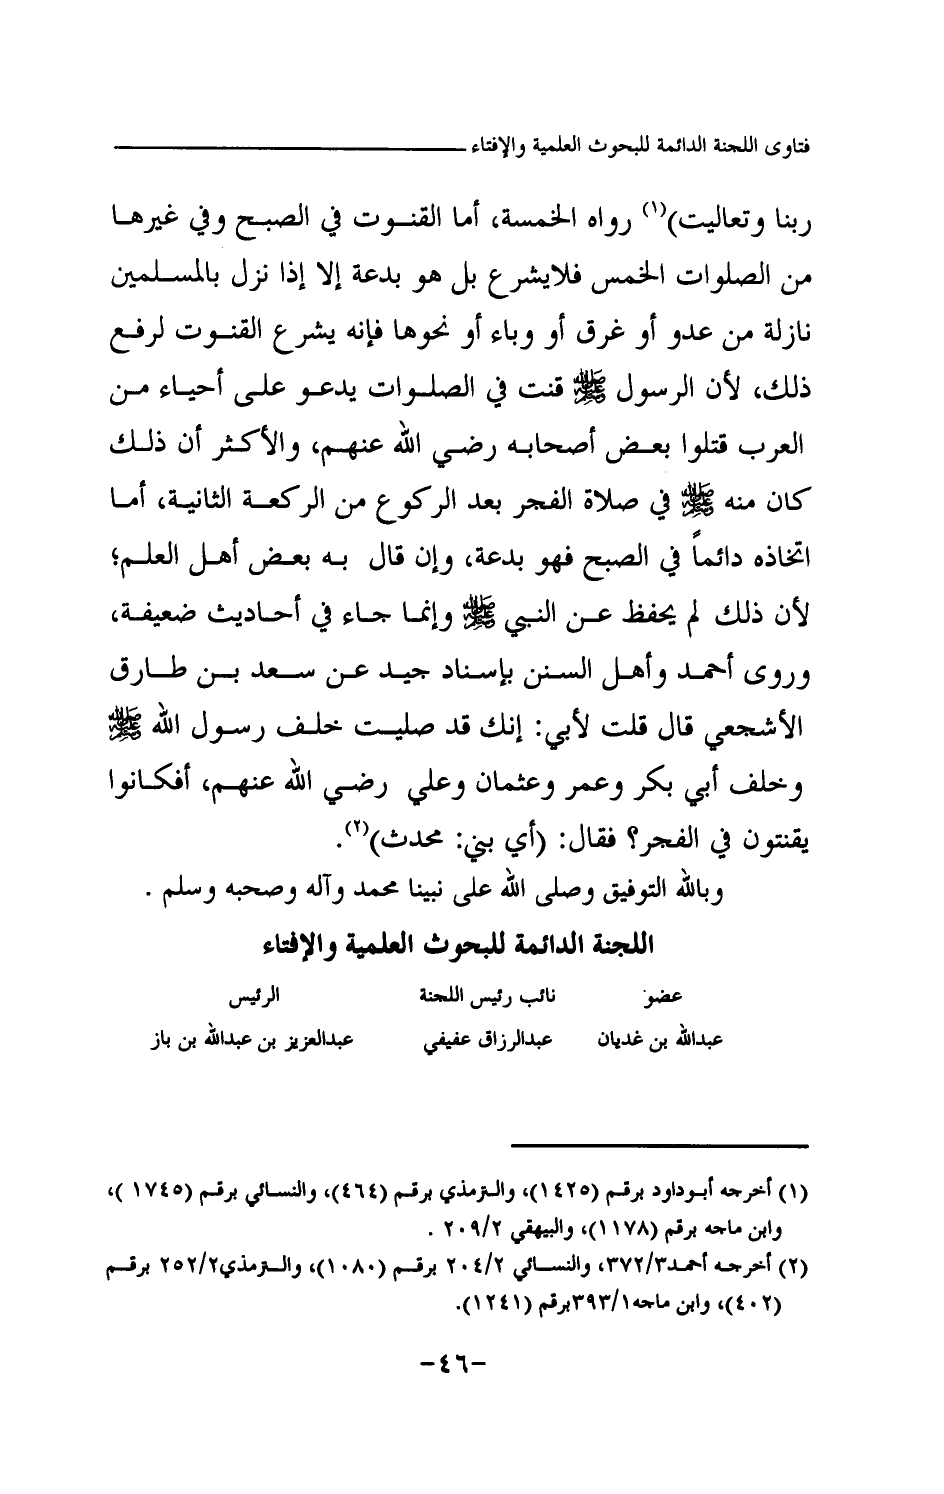 فتاوى اللجنة الدائمة للبحوث العلمية والإفتاء
ربنا وتعاليت)(١) رواه الخمسة، أما القنوت في الصبح وفي غيرها
من الصلوات الخمس فلايشرع بل هو بدعة إلا إذا نزل بالمسلمين
نازلة من عدو أو غرق أو وباء أو نحوها فإنه يشرع القنوت لرفع
ذلك، لأن الرسول ﷺ قنت في الصلوات يدعو على أحياء من
العرب قتلوا بعض أصحابه رضي الله عنهم، والأكثر أن ذلك
كان منه ﷺ في صلاة الفجر بعد الركوع من الركعة الثانية، أما
اتخاذه دائماً في الصبح فهو بدعة، وإن قال به بعض أهل العلم؛
لأن ذلك لم يحفظ عن النبي ﷺ وإنما جاء في أحاديث ضعيفة،
وروى أحمد وأهل السنن بإسناد جيد عن سعد بن طارق
الأشجعي قال قلت لأبي: إنك قد صليت خلف رسول الله ﷺ
وخلف أبي بكر وعمر وعثمان وعلي رضي الله عنهم، أفكانوا
يقنتون في الفجر؟ فقال: (أي بني: محدث)(٢).
وبالله التوفيق وصلى الله على نبينا محمد وآله وصحبه وسلم .
اللجنة الدائمة للبحوث العلمية والإفتاء
عضو نائب رئيس اللجنة الرئيس
عبدالله بن غديان عبدالرزاق عفيفي عبدالعزيز بن عبدالله بن باز
(١) أخرجه أبوداود برقم (١٤٢٥)، والترمذي برقم (٤٦٤)، والنسائي برقم (١٧٤٥ )،
وابن ماجه برقم (١١٧٨)، والبيهقي ٢٠٩/٢ .
(٢) أخرجه أحمد٣٧٢/٣، والنسائي ٢٠٤/٢ برقم (١٠٨٠)، والترمذي٢٥٢/٢ برقم
(٤٠٢)، وابن ماجه٣٩٣/١برقم (١٢٤١).
-٤٦-